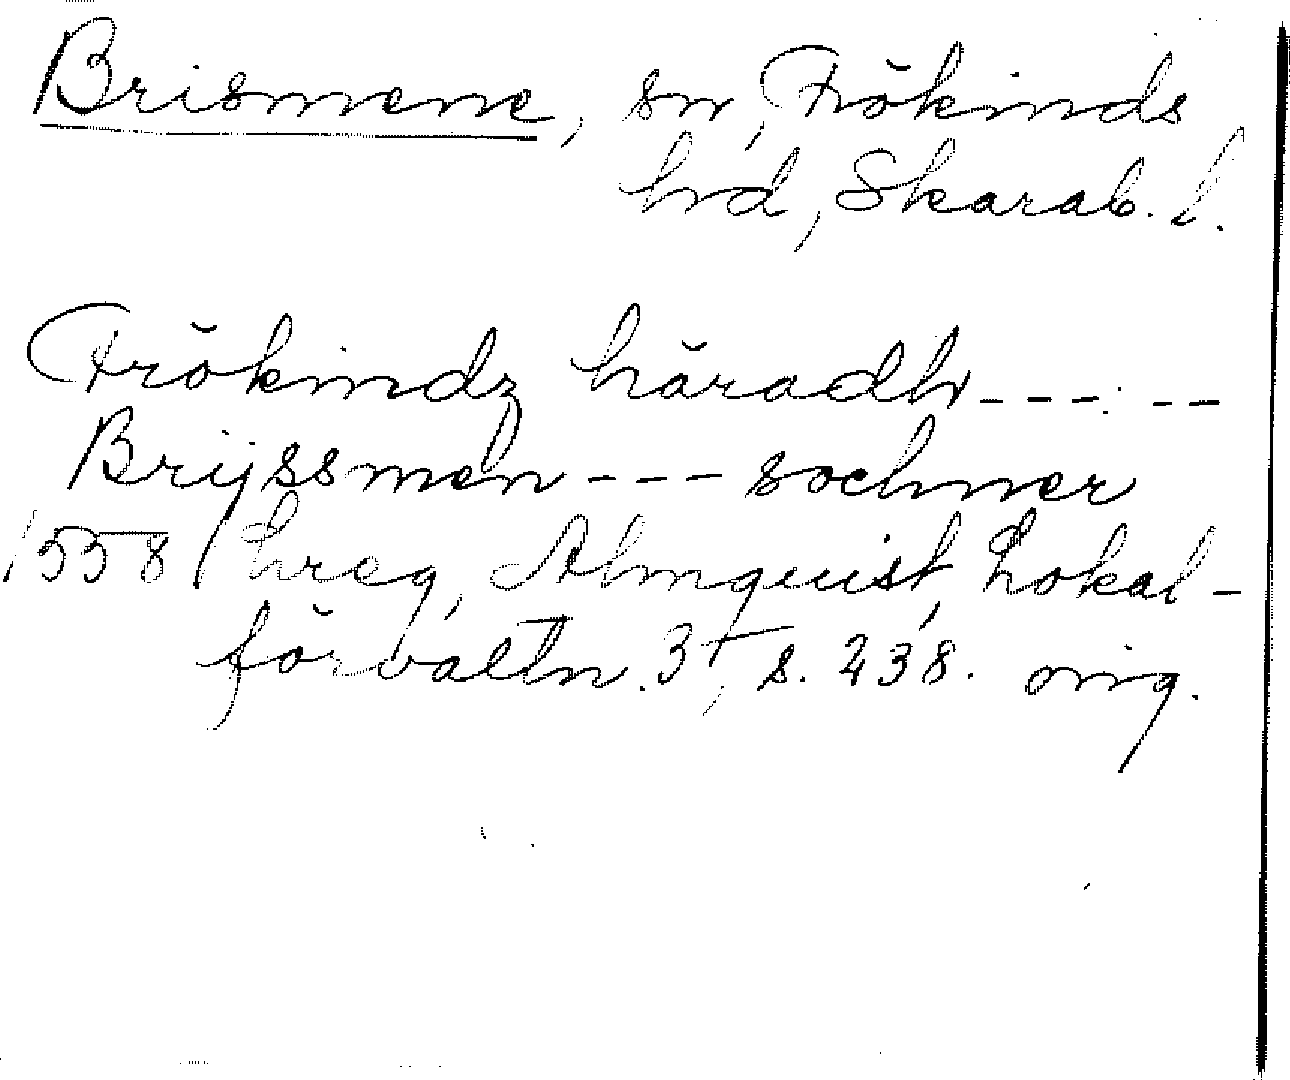 Brismene, sn, Frökinds
hrd, Skarab. l.
Frökindz häradh - - - - -
Brÿssmen - - - sochner
1558 hreg, Almquist, Lokal-
förvaltn. 3, s. 238. orig.